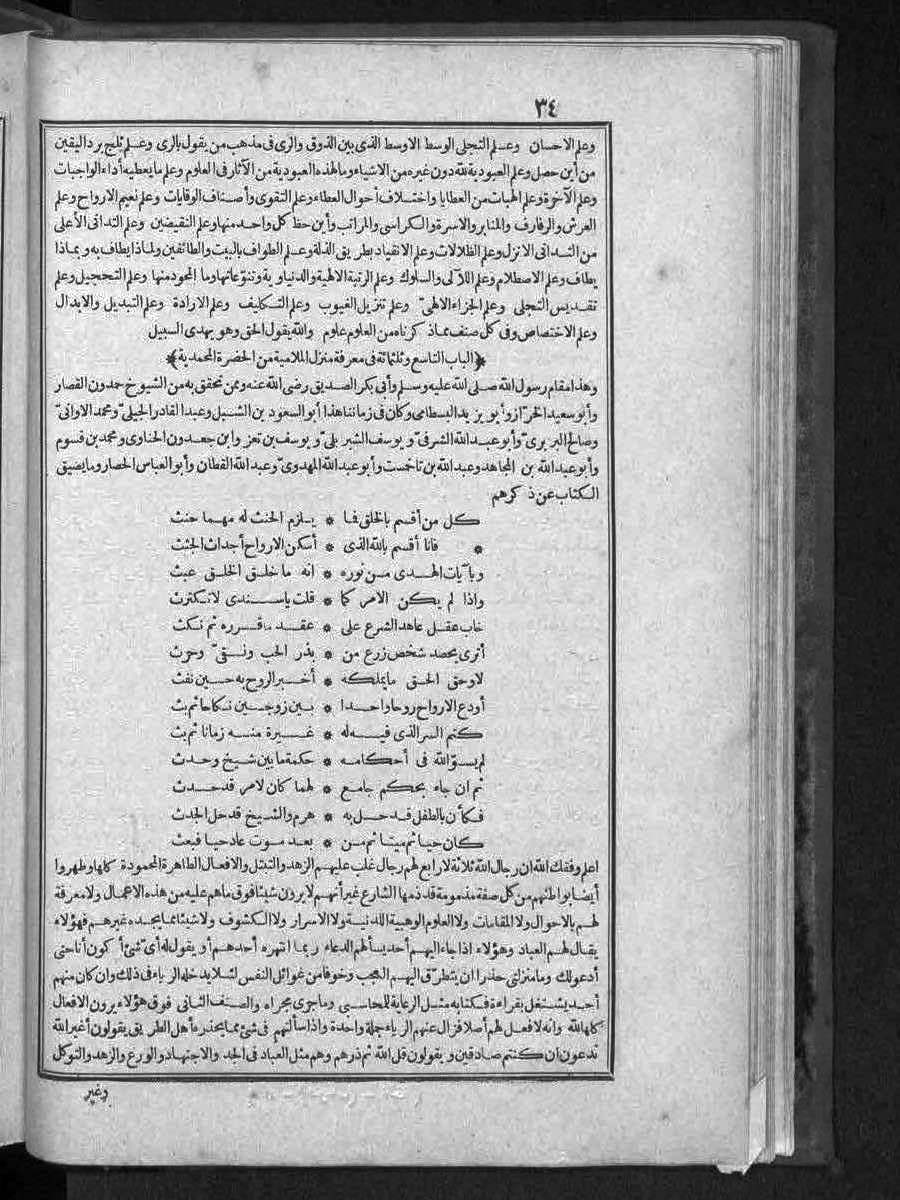 ٣٤
وعلم الاحسان وعلم التجلى الوسط الاوسط الذى بين الذوق والرى فى مذهب من يقول بالرى وعلم ثلج برد اليقين
من أين حصل وعلم العبودية لله دون غيره من الاشياء وما لهذه العبودية من الآثار فى العلوم وعلم ما يعطيه أداء الواجبات
وعلم الآخرة وعلم الهبات من العطايا واختلاف أحوال العطاء وعلم التقوى وأصناف الوقايات وعلم نعيم الارواح وعلم
العرش والرفارف والمنابر والاسرة والكراسى والمراتب وأين حظ كل واحد منها وعلم النقيضين وعلم التدانى الأعلى
من التدانى الانزل وعلم الظلالات وعلم الانقياد بطريق الذلة وعلم الطواف بالبيت والطائفين ولماذا يطاف به وبماذا
يطاف وعلم الاصطلام وعلم اللآلى والسلوك وعلم الرتبة الالهية والدنياوية وتنوّعاتها وما المحمود منها وعلم التحجيل وعلم
تقديس التجلى وعلم الجزاء الالهىّ وعلم تنزيل الغيوب وعلم التكليف وعلم الارادة وعلم التبديل والابدال
وعلم الاختصاص وفى كل صنف مماذ كرناه من العلوم علوم والله يقول الحق وهو يهدى السبيل
﴿الباب التاسع وثلثمائة فى معرفة منزل الملامية من الحضرة المحمدية﴾
وهذا مقام رسول الله صلى الله عليه وسلم وأبى بكر الصديق رضى الله عنه وممن تحقق به من الشيوخ حمدون القصار
وأبو سعيد الخرّاز وأبو يزيد البسطامى وكان فى زماننا هذا أبو السعود بن الشبل وعبد القادر الجيلىّ ومحمد الاوانىّ
وصالح البربرىّ وأبو عبد الله الشرفىّ ويوسف الشبربلىّ ويوسف بن تعز وابن جعدون الحناوى ومحمد بن قسوم
وأبو عبد الله بن المجاهد وعبد الله بن تاخمست وأبو عبد الله المهدوىّ وعبد الله القطان وأبو العباس الحصار وما يضيق
الكتاب عن ذكرهم
كل من أقسم بالخلق فما * يلزم الحنث له مهما حنث
* فانا أقسم بالله الذى * أسكن الارواح أجداث الجثث
وبآيات الهدى من نوره * انه ما خلق الخلق عبث
واذا لم يكن الامر كما * قلت ياسندى لا تكترث
خاب عقل عاهد الشرع على * عقد ما قرره ثم نكث
أترى يحصد شخص زرع من * بذر الحب ونقىّ وحرث
لا وحق الحق ما يملكه * أخبر الروح به حين نفث
أودع الارواح روحا واحدا * بين زوجين نكاحا ثم بث
كتم السر الذى فيه له * غيرة منه زمانا ثم بث
لم يسوّ الله فى أحكامه * حكمة ما بين شيخ وحدث
ثم ان جاء بحكم جامع * لهما كان لامر قد حدث
فكأن بالطفل قد حل به * هرم والشيخ قد حل الجدث
كان حيا ثم ميتا ثم من * بعد موت عاد حيا فبعث
اعلم وفقك الله ان رجال الله ثلاثة لا رابع لهم رجال غلب عليهم الزهد والتبتل والافعال الطاهرة المحمودة كلها وطهروا
أيضا بواطنهم من كل صفة مذمومة قد ذمها الشارع غير أنهم لا يرون شيئا فوق ماهم عليه من هذه الاعمال ولا معرفة
لهم بالاحوال ولا المقامات ولا العلوم الوهبية اللدنية ولا الاسرار ولا الكشوف ولا شيئا مما يجده غيرهم فهؤلاء
يقال لهم العباد وهؤلاء اذا جاء اليهم أحد يسألهم الدعاء ربما انتهره أحدهم أو يقول له أىّ شئ أكون أنا حتى
أدعو لك وما منزلتى حذرا ان يتطرّق اليهم العجب وخوفا من غوائل النفس لئلا يدخله الرياء فى ذلك وان كان منهم
أحد يشتغل بقراءة فكتابه مثل الرعاية للمحاسبى وما جرى مجراه والصنف الثانى فوق هؤلاء يرون الافعال
كلها لله وانه لا فعل لهم أصلا فزال عنهم الرياء جملة واحدة واذا سألتهم فى شئ مما يحذره أهل الطريق يقولون أغير الله
تدعون ان كنتم صادقين ويقولون قل الله ثم ذرهم وهم مثل العباد فى الجد والاجتهاد والورع والزهد والتوكل
وغير